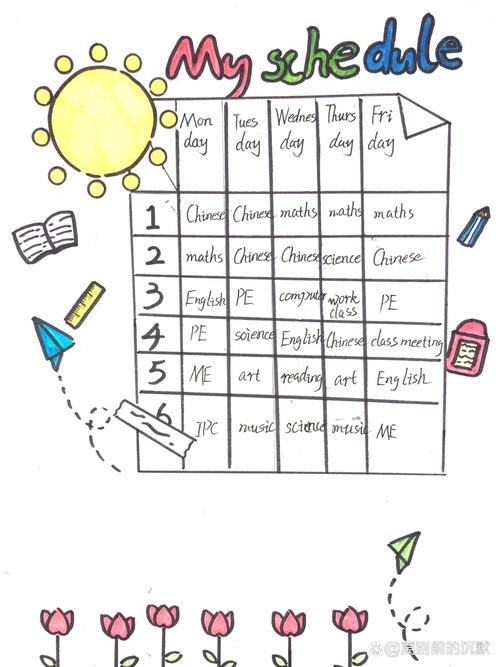 My schedule
Mon day Tues day Wednes day Thurs day Fri day
1 Chinese Chinese maths maths maths
2 maths Chinese Chinese science Chinese
3 English PE computer work class PE
4 PE soience English Chinese class meeting
5 ME art reading art English
6 IPC music science music ME
@离别前的沉默